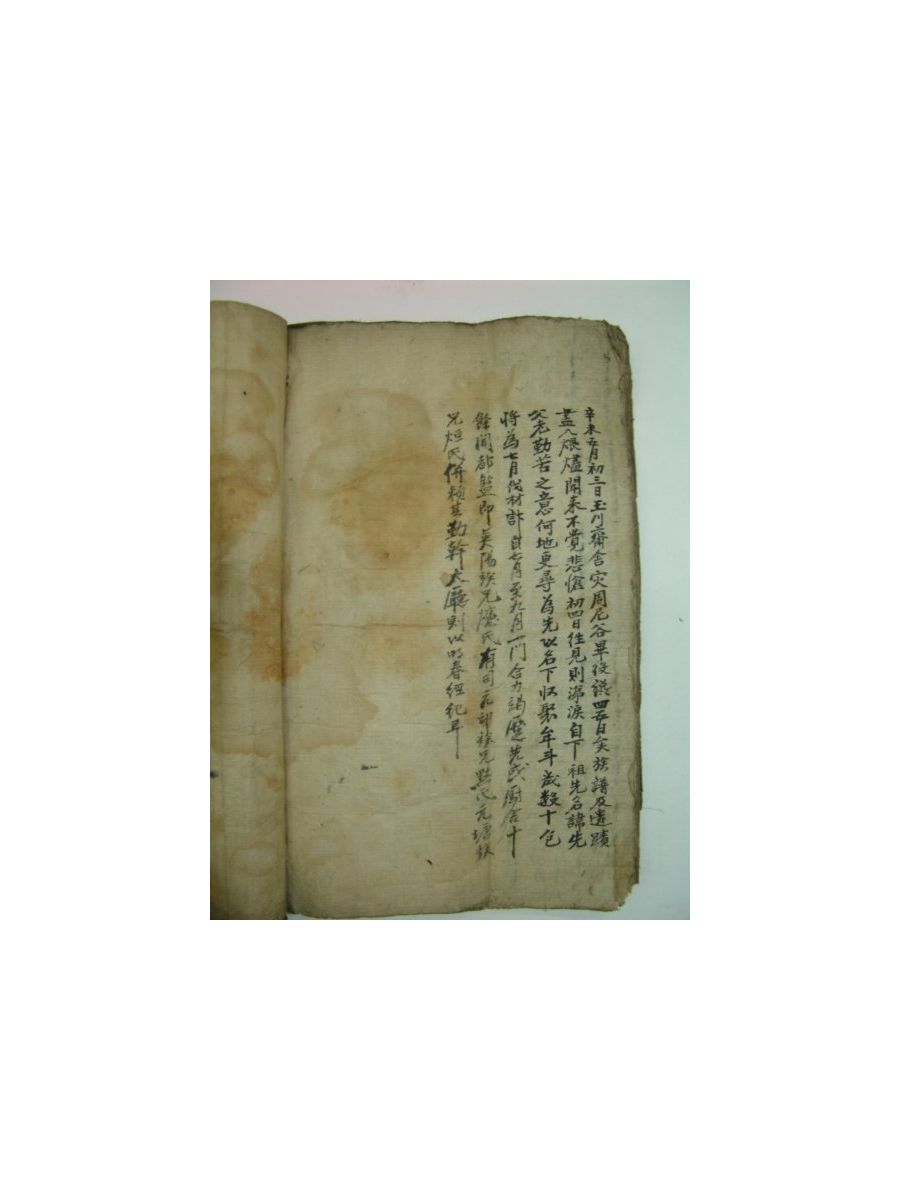 辛未五月初三日玉川齋舍灾周尼谷畢役後四五日矣族譜及遺蹟
盡入煨燼聞來不覺悲愴初四日往見則涕淚自下祖先名諱先
父老勤苦之意何地更尋為先以名下收聚年斗歲數十包
將為七月伐材計自七月至九月一門合力竭蹙先成廚舍十
餘間都監即英陽族兄 氏有司 即族兄 氏元塘族
兄烜氏併頼其勤幹大廳則以明春經紀耳